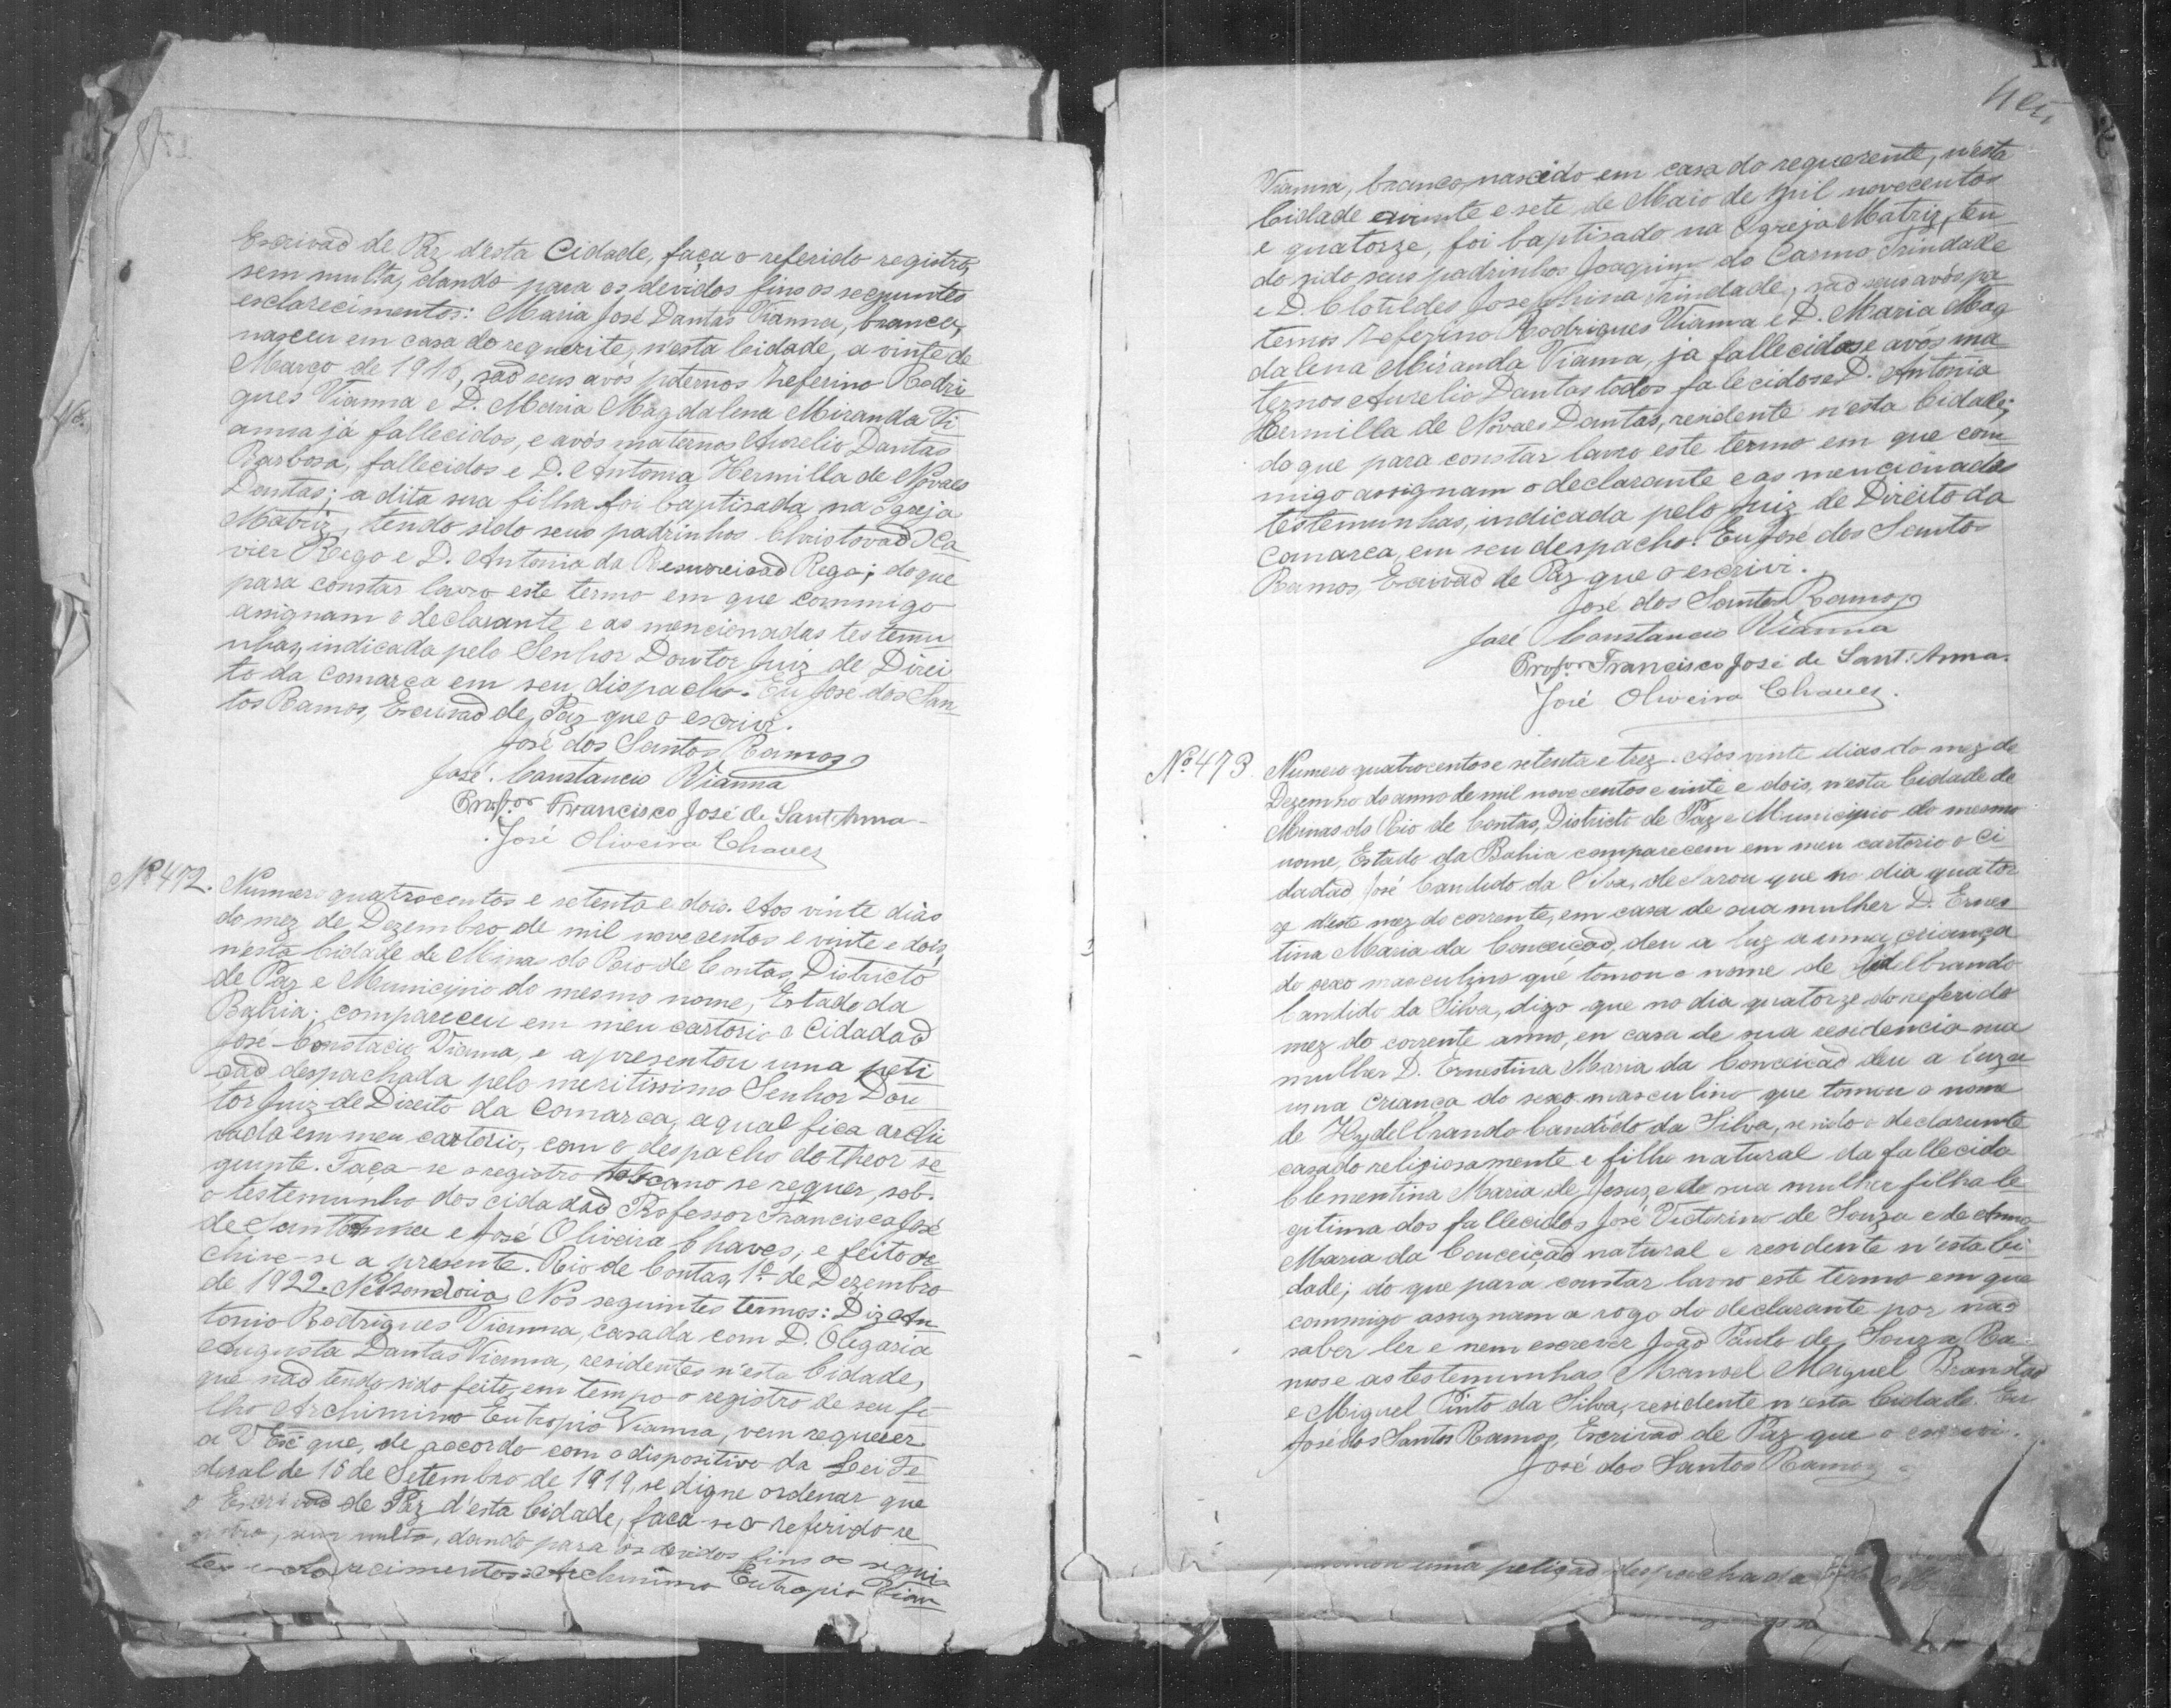 Escrivaõ de Paz d'esta Cidade, faça o referido registro,
sem multa, dando para os devidos fins os seguintes
esclarecimentos: Maria José Dantas Vianna, branca,
nasceu em casa do requerite, n'esta Cidade, a vinte de
Março de 1910, saõ seus avós paternos Zeferino Rodri
gues Vianna e D. Maria Magdalena Miranda Vi
anna já fallecidos, e avós maternos Aurelio Dantas
Barbosa, fallecidos e D. Antonia Hermilla de Novaes
Dantas; a dita sua filha foi baptisada na Igreja
Matriz, tendo sido seus padrinhos Christovaõ Xa
vier Rego e D. Antonia da Resurreisaõ Rego; do que
para constar lavro este termo em que commigo
assignam o declarante e as mencionadas testemu
nhas, indicada pelo Senhor Doutor Juiz de Direi
to da Comarca em seu dispacho. Eu José dos San
tos Ramos, Escrivaõ de Paz que o escrivi.
José dos Santos Ramos
José Constancio Vianna
Profor Francisco José de Sant'Anna
José Oliveira Chaves
Nº 472. Numero quatrocentos e setenta e dois. Aos vinte dias
do mez de Dezembro de mil novecentos e vinte e dois,
n'esta Cidade de Minas do Rio de Contas, Districto
de Paz e Municipio do mesmo nome, Estado da
Bahia; compareceu em meu cartorio o Cidadaõ
José Constacio Vianna, e apresentou uma peti
çaõ despachada pelo meritissimo Senhor Dou
tor Juiz de Direito da Comarca, aqual fica archi
vada em meu cartorio, com o despacho do theor se
guinte. Faça-se o registro como se requer, sob.
o testemunho dos cidadaõ Professor Francisco José
de Sant'Anna e José Oliveira Chaves, e feito ar
chive-se a presente. Rio de Contas, 1º de Dezembro
de 1922. Nos seguintes termos: Diz An
tonio Rodrigues Vianna, casada com D. Olegaria
Augusta Dantas Vianna, residentes n'esta Cidade,
que naõ tendo sido feito, em tempo o registro de seu fi
lho Archimimo Eutropio Vianna, vem requerer
a V Exc que, de accordo com o dispositivo da Lei Fe
deral de 16 de Setembro de 1919, se digne ordenar que
o Escrivaõ de Paz d'esta Cidade, faça-se o referido re
gistro, sem multa, dando para os devidos fins os segui
tes esclarecimentos: Archimimo Eutropio Vian
Vianna, branco, nascido em casa do requerente, n'esta
Cidade e vinte e sete de Maio de mil novecentos
e quatorze, foi baptisado na Igreja Matriz, ten
do sido seus padrinhos Joaquim do Carmo Trindade
e D. Clotildes Josephina Trindade; saõ seus avós pa
ternos Zeferino Rodrigues Vianna e D. Maria Mag
dalena Miranda Vianna, ja fallecidos e avós ma
ternos Aurelio Dantas todos falecidos e D. Antonia
Hermilla de Novaes Dantas, residente n'esta Cidade;
do que para constar lavro este termo em que com
migo assignam o declarante e as mencionadas
testemunhas, indicada pelo Juiz de Direito da
Comarca, em seu despacho. Eu José dos Santos
Ramos, Escrivaõ de Paz que o escrivi.
José dos Santos Ramos
José Constancio Vianna
Profor Francisco José de Sant'Anna.
José Oliveira Chaves.
Nº 473. Numero quatrocentos e setenta e trez. Aos vinte dias do mez de
Dezembro do anno de mil novecentos e vinte e dois, n'esta Cidade de
Minas do Rio de Contas, Districto de Paz e Municipio do mesmo
nome, Estado da Bahia comparecem em meu cartorio o Ci
dadaõ José Candido da Silva, declarou que no dia quator
ze d'este mez do corrente, em casa de sua mulher D. Ernes
tina Maria da Conceiçaõ, deu a luz a uma criança
do sexo masculino que tomou o nome de
Candido da Silva, digo que no dia quatorze do referido
mez do corrente anno, en casa de sua residencia sua
mulher D. Ernestina Maria da Conceicaõ deu a luz a
uma criança do sexo masculino que tomou o nome
de Hydelbrando Candido da Silva, sendo o declarante
casado religiosamente e filho natural da fallecida
Clementina Maria de Jesus, e de sua mulher filha le
gitima dos fallecidos José Victorino de Souza e de Anna
Maria da Conceiçaõ natural e residente n'esta Ci
dade; do que para constar lavro este termo em que
commigo assignam a rogo do declarante por naõ
saber ler e nem escrever Joaõ Paulo de Souza Ra
mos e as testemunhas Manoel Miguel Brandaõ
e Miguel Pinto da Silva, residente n'esta Cidade. Eu
José dos Santos Ramos, Escrivaõ de Paz que o escrivi.
José dos Santos Ramos
uma petiçaõ despachada